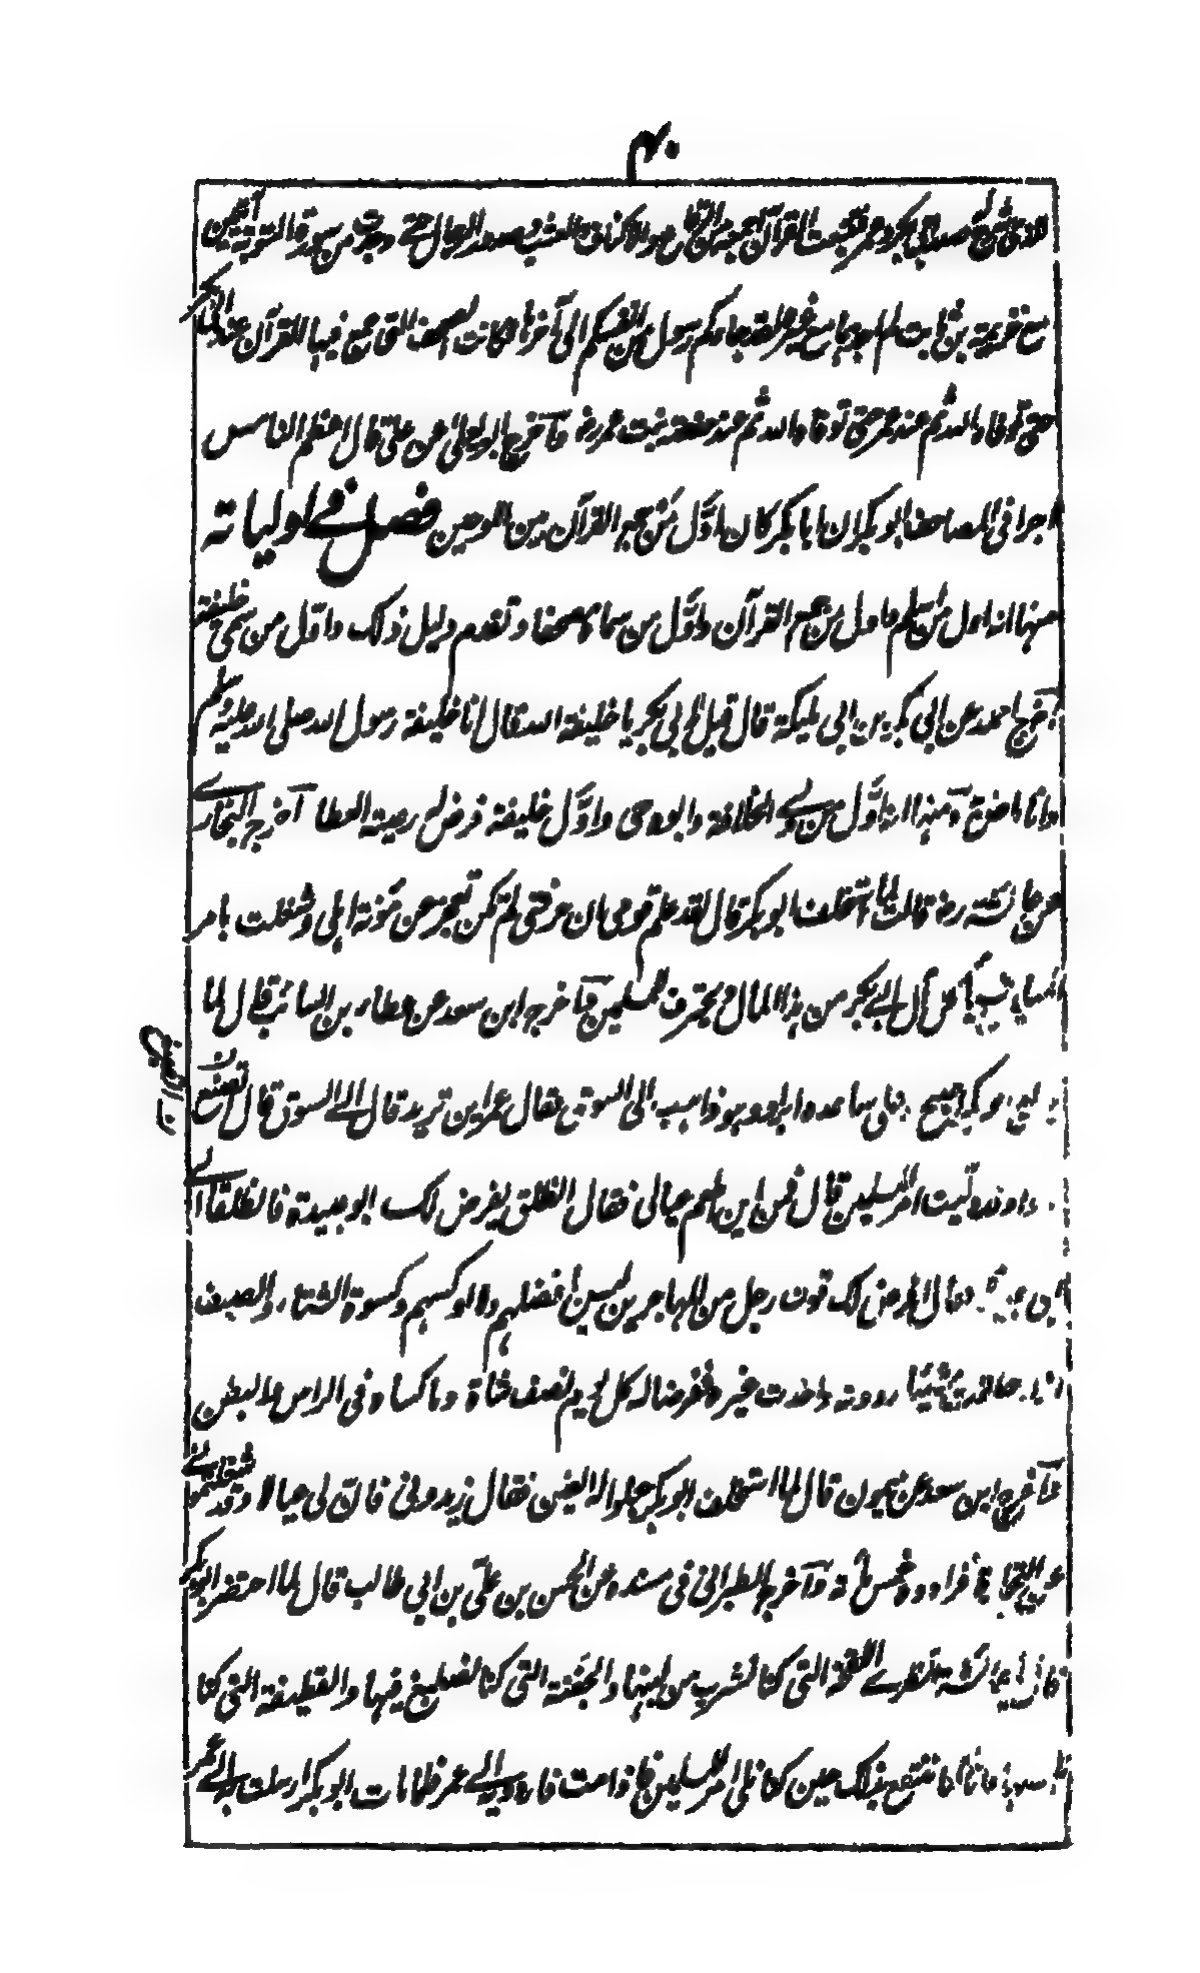 شرح الله صدر ابي بكر وعمر فتتبعت القرآن اجمعه من الرقاع والاكتاف والعسب وصدور الرجال حتى وجدت من سورة التوبة آيتين
مع خزيمة بن ثابت لم اجدها مع غيره لقد جاءكم رسول من انفسكم الى آخرها فكانت الصحف التى جمع فيها القرآن عند ابى بكر
حتى توفاه الله ثم عند عمر حتى توفاه الله ثم عند حفصة بنت عمر رض وآخرج ابو يعلى عن على قال اعظم الناس
اجرا فى المصاحف ابو بكر ان ابا بكر كان اول من جمع القرآن بين اللوحين فصل فى اولياته
منها انه اول من اسلم واول من جمع القرآن واول من سماه مصحفا وتقدم دليل ذلك واول من سمى خليفة
آخرج احمد عن ابى بكر بن ابى مليكة قال قيل لابى بكر يا خليفة الله قال انا خليفة رسول الله صلى الله عليه وسلم
وانا راض به ومنها انه اول من ولى الخلافة وابوه حى واول خليفة فرض له رعيته العطا آخرج البخارى
عن عائشة رض قالت لما استخلف ابو بكر قال لقد علم قومى ان حرفتى لم تكن تعجز عن مؤنة اهلى وشغلت بامر
المسلمين فسيأكل آل ابى بكر من هذا المال ويحترف للمسلمين وآخرج ابن سعد عن عطاء بن السائب قال لما
بويع ابو بكر اصبح وعلى ساعده ابراد وهو ذاهب الى السوق فقال عمر اين تريد قال الى السوق قال تصنع
ماذا وقد وليت امر المسلمين قال فمن اين اطعم عيالى فقال انطلق يفرض لك ابو عبيدة فانطلقا الى
ابى عبيدة فقال افرض لك قوت رجل من المهاجرين ليس بافضلهم ولا اوكسهم وكسوة الشتاء والصيف
اذا اخلقت شيئا رددته واخذت غيره ففرضا له كل يوم نصف شاة وما كساه فى الراس والبطن
وآخرج ابن سعد عن ميمون قال لما استخلف ابو بكر جعلوا له الفين فقال زيدونى فان لى عيالا وقد شغلتمونى
عن التجارة فزادوه خمس مائة وآخرج الطبرانى فى مسنده عن الحسن بن على بن ابى طالب قال لما احتضر ابو بكر
قال يا عائشة انظرى اللقحة التى كنا نشرب من لبنها والجفنة التى كنا نصطبغ فيها والقطيفة التى كنا
نلبسها فانا كنا ننتفع بذلك حين كنا نلى امر المسلمين فاذا مت فاردديه الى عمر فلما مات ابو بكر ارسلت به الى عمر